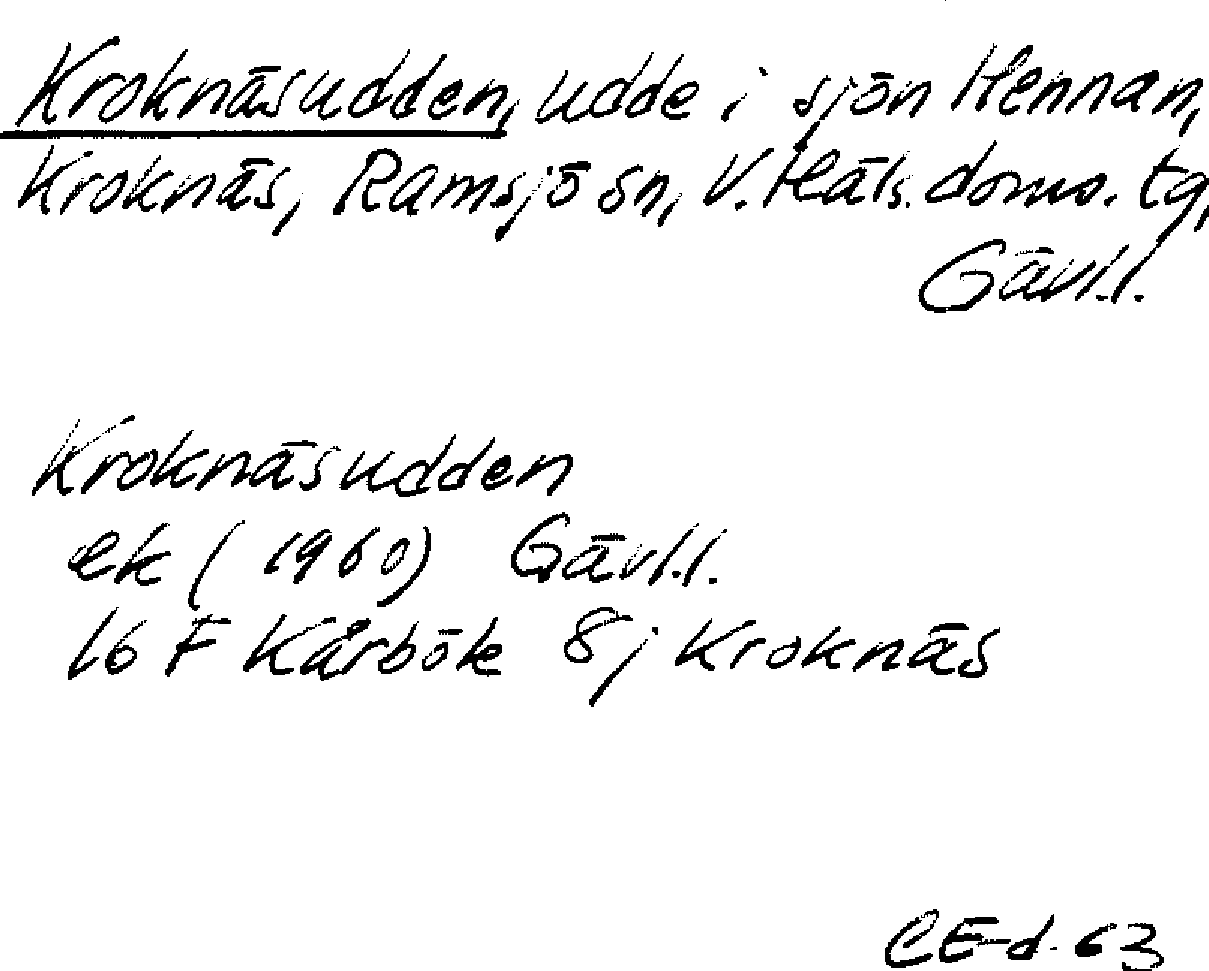 Kroknäsudden, udde i sjön Hennan,
Kroknäs, Ramsjö sn, V. Häls. doms. tg,
Gävl.l.
Kroknäsudden
ek (1960) Gävl.l.
16 F Kårbök 8j Kroknäs
CE-d. 63